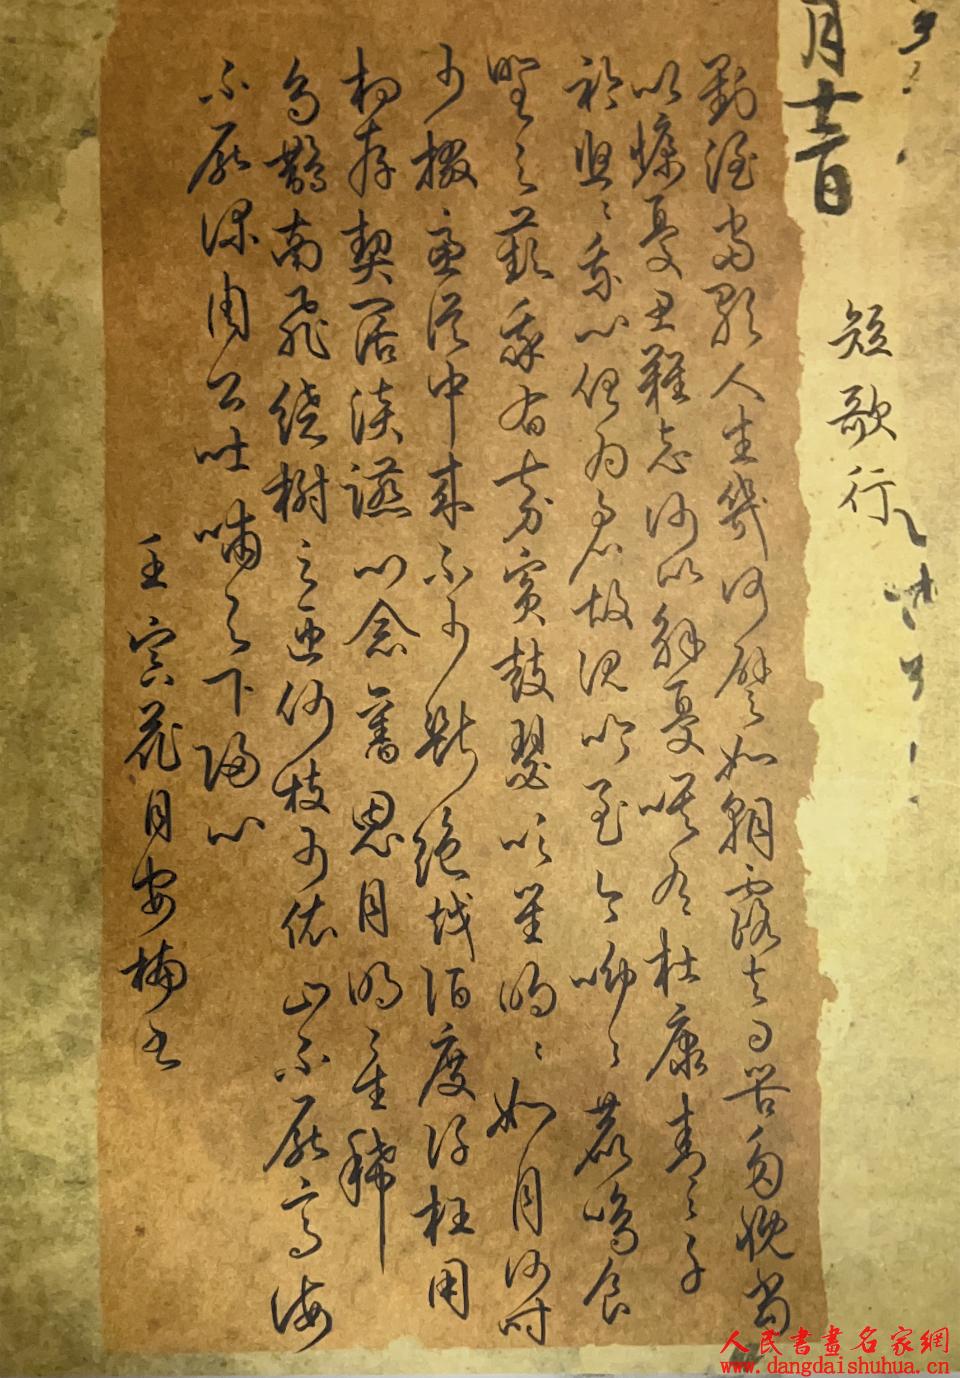 月十二日
短歌行
對酒當歌人生幾何譬如朝露去日苦多慨當
以慷憂思難忘何以解憂唯有杜康青々子
衿悠々我心但为君故沉吟至今呦々鹿鳴食
野之蘋我有嘉賓鼓瑟吹笙明々如月何时
可掇憂從中来不可斷絕越陌度阡枉用
相存契闊談讌心念舊恩月明星稀
烏鵲南飛绕樹三匝何枝可依山不厭高海
不厭深周公吐哺天下歸心
壬寅花月安楠书
人民書畫名家網
www.dangdaishuhua.cn